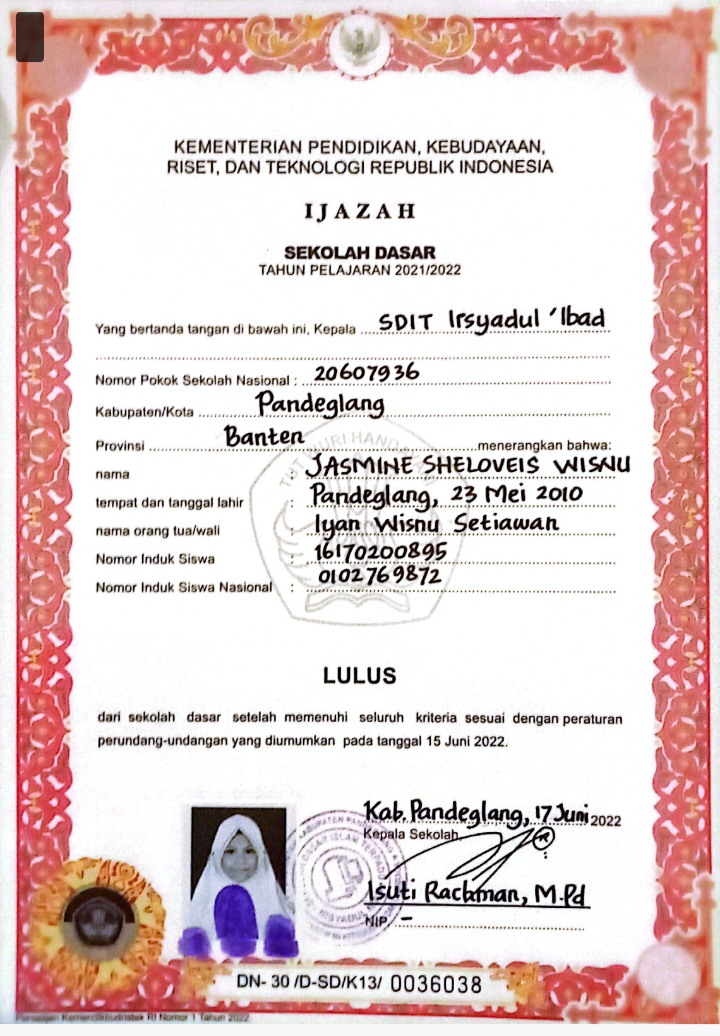 KEMENTERIAN PENDIDIKAN, KEBUDAYAAN,
RISET, DAN TEKNOLOGI REPUBLIK INDONESIA
IJAZAH
SEKOLAH DASAR
TAHUN PELAJARAN 2021/2022
Yang bertanda tangan di bawah ini, Kepala SDIT Irsyadul 'Ibad
Nomor Pokok Sekolah Nasional : 20607936
Kabupaten/Kota Pandeglang
Provinsi Banten menerangkan bahwa:
nama : JASMINE SHELOVEIS WISNU
tempat dan tanggal lahir : Pandeglang, 23 Mei 2010
nama orang tua/wali : Iyan Wisnu Setiawan
Nomor Induk Siswa : 16170200895
Nomor Induk Siswa Nasional : 0102769872
TUT WURI HANDAYANI
LULUS
dari sekolah dasar setelah memenuhi seluruh kriteria sesuai dengan peraturan
perundang-undangan yang diumumkan pada tanggal 15 Juni 2022.
Kab. Pandeglang, 17 Juni 2022
Kepala Sekolah
Isuti Rachman, M.Pd
NIP. -
DN- 30 /D-SD/K13/ 0036038
Persesjen Kemendikbudristek RI Nomor 1 Tahun 2022